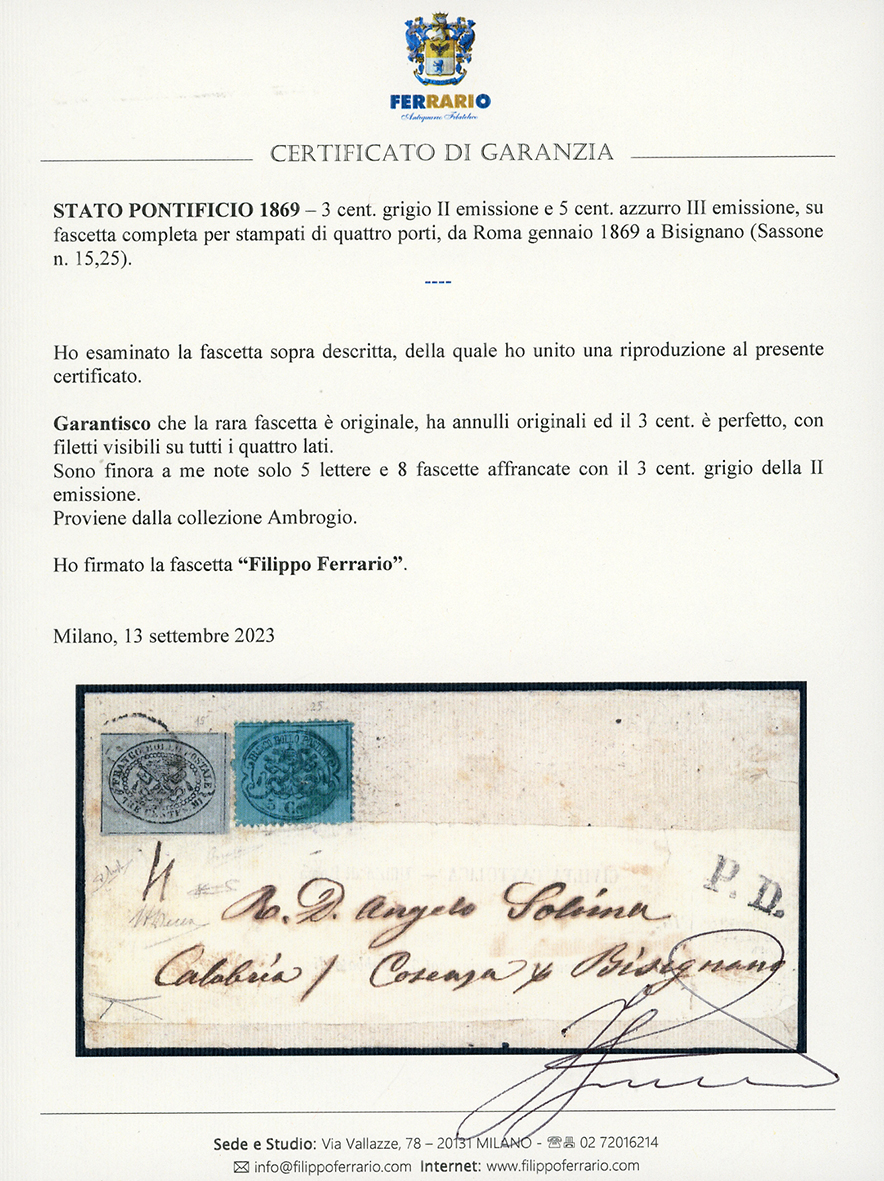 FERRARIO
Antiquario Filatelico
CERTIFICATO DI GARANZIA
STATO PONTIFICIO 1869 – 3 cent. grigio II emissione e 5 cent. azzurro III emissione, su
fascetta completa per stampati di quattro porti, da Roma gennaio 1869 a Bisignano (Sassone
n. 15,25).
----
Ho esaminato la fascetta sopra descritta, della quale ho unito una riproduzione al presente
certificato.
Garantisco che la rara fascetta è originale, ha annulli originali ed il 3 cent. è perfetto, con
filetti visibili su tutti i quattro lati.
Sono finora a me note solo 5 lettere e 8 fascette affrancate con il 3 cent. grigio della II
emissione.
Proviene dalla collezione Ambrogio.
Ho firmato la fascetta “Filippo Ferrario”.
Milano, 13 settembre 2023
15
25
FRANCO BOLLO POSTALE
TRE CENTESIMI
FRANCO BOLLO POSTALE
5 Cent
4
P. D.
R. D. Angelo Solima
Calabria / Cosenza x Bisignano
Sede e Studio: Via Vallazze, 78 – 20131 MILANO - ☏ 02 72016214
✉ info@filippoferrario.com Internet: www.filippoferrario.com